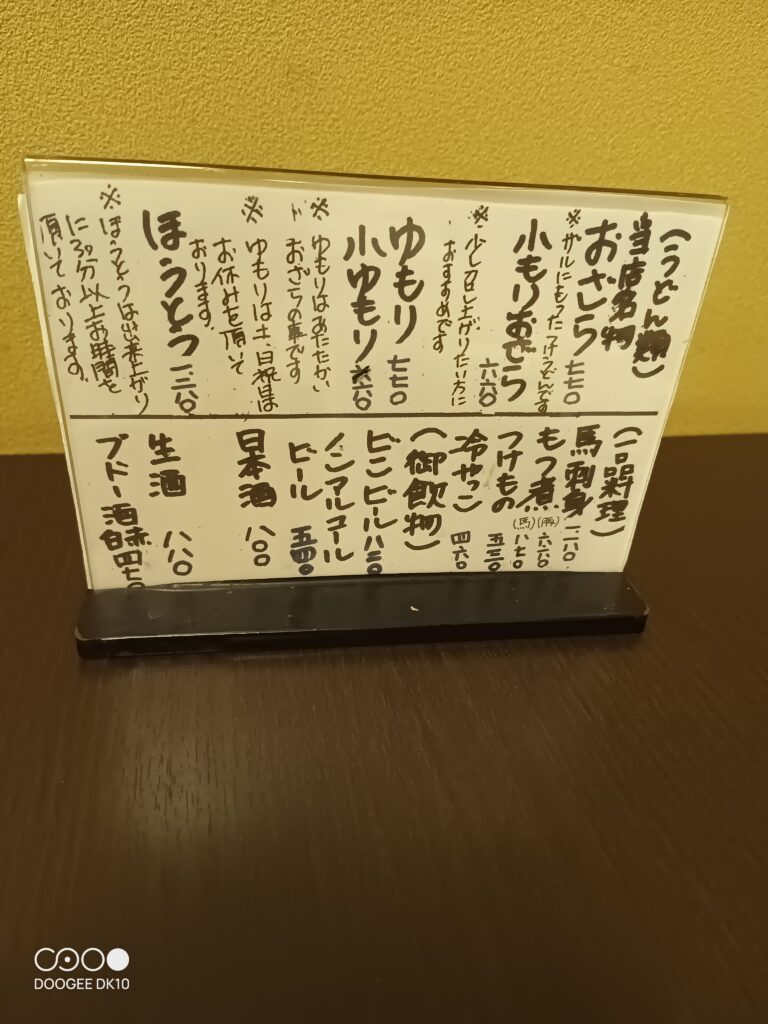 (うどん類)
当店名物
おざら 七七〇
※ザルにもったつけうどんです
小もりおざら 六六〇
※少し召し上がりたい方に
おすすめです
ゆもり 七七〇
小ゆもり 六六〇
※ゆもりはあたたかい
おざらの事です
※ゆもりは土、日祝は
お休みを頂いて
おります。
ほうとう 一三二〇
※ほうとうは出来上がり
に30分以上お時間を
頂いております。
(一品料理)
馬刺身 一二八〇
もつ煮 (豚) 六六〇
(馬) 八七〇
つけもの 五三〇
冷やっこ 四六〇
(御飲物)
ビンビール 八二〇
ノンアルコール
ビール 五四〇
日本酒 八〇〇
生酒 八八〇
ブドー酒 赤白 四七〇
DOOGEE DK10